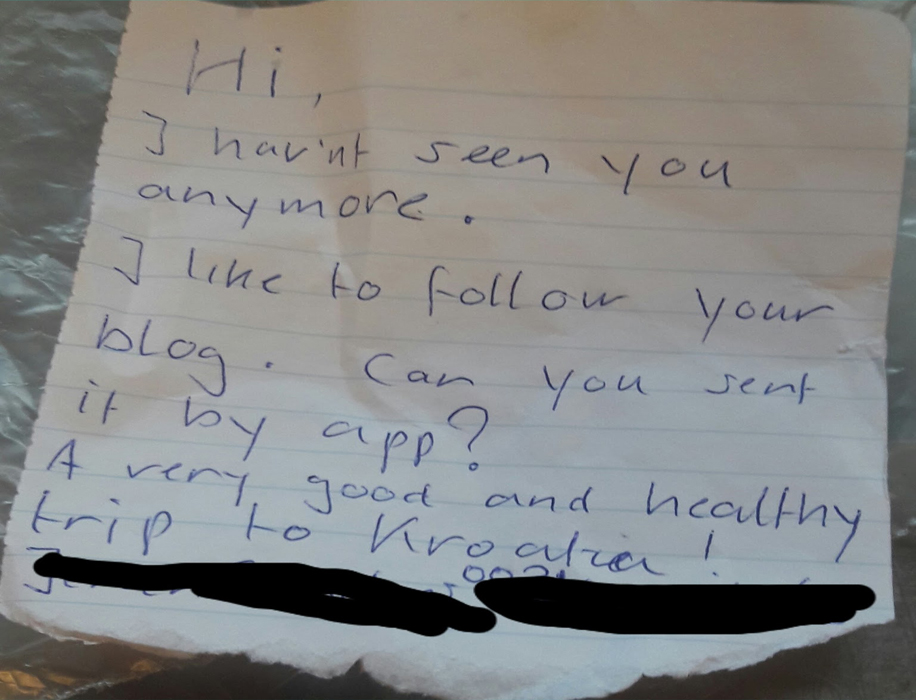 Hi,
I hav'nt seen you
anymore.
I like to follow your
blog. Can you sent
it by app?
A very good and healthy
trip to Kroatia!